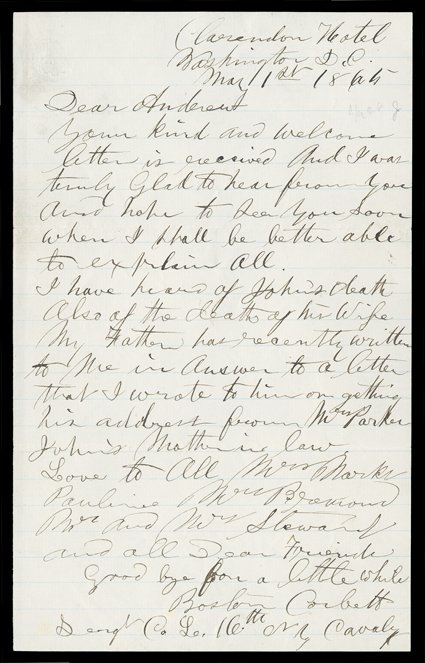 Clarendon Hotel
Washington D.C.
May 1st 1865
Dear Andrew
Your kind and welcome
letter is received And I was
truly Glad to hear from You
And hope to see You soon
when I shall be better able
to explain All.
I have heard of John's death
Also of the death of his Wife
My Father has recently written
to Me in Answer to a letter
that I wrote to him on getting
his address from Mrs Parker
John's Mother in law
Love to All Mrs Marks
Pauline Mrs
Mr and Mrs Stewart
and all Dear Friends
Good bye for a little while
Boston Corbett
Sergt Co L. 16th N Y Cavalry